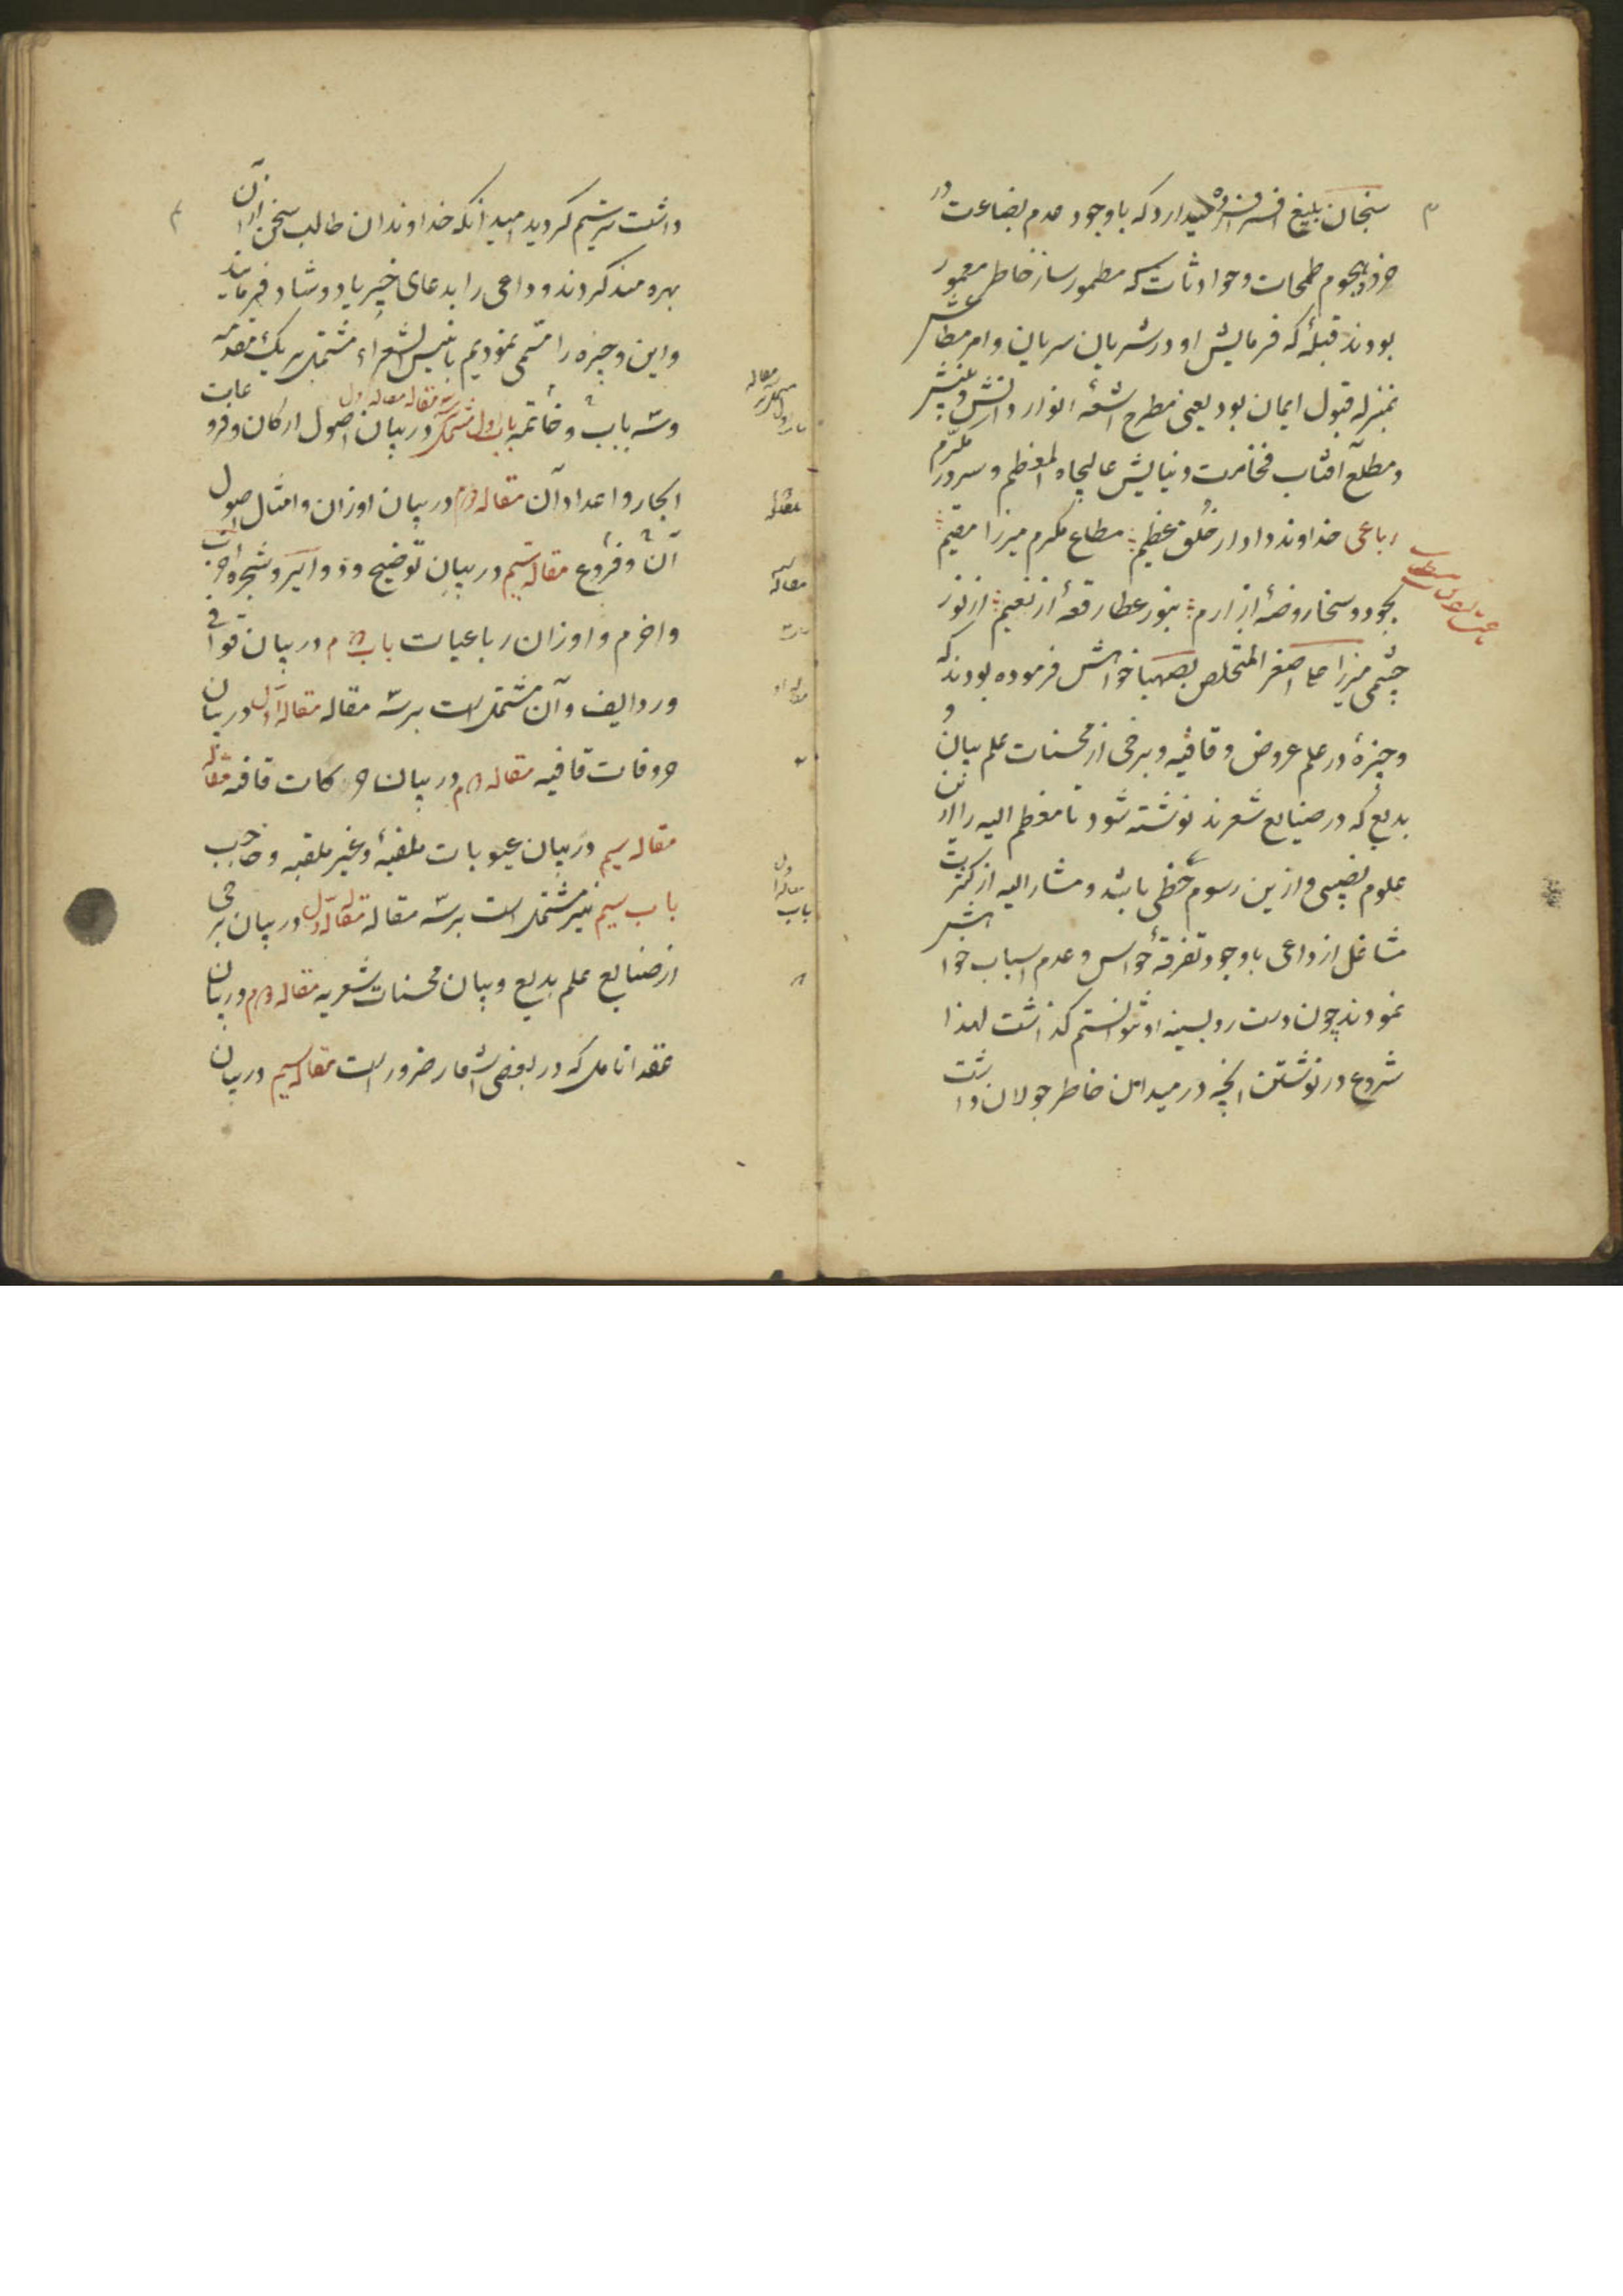 سنجان بلیغ میدارد که با وجود عدم بضاعت در
خرد و هجوم طمحات و حوادثات که مطمورساز خاطر معمور
بودند قبلهٔ که فرمایش او در شریان سریان و امر مطاعش
بمنزله قبول ایمان بود یعنی مطرح اشعهٔ انوار دانش و بینش
و مطلع آفتاب فخامت و نیایش عالیجاه المعظم و سرور مکرم
رباعی خداوند دادار خلق عظیم مطاع مکرم میرزا مقیم
بجود و سخا روضهٔ از ارم بنور عطا رقعهٔ از نعیم از نور
چشمی میرزا علی اصغر المتخلص بصهبا خواهش فرموده بودند که
وجیزهٔ در علم عروض و قافیه و برخی از محسنات علم بیان و
بدیع که در صنایع شعرند نوشته شود تا معظم الیه را از این
علوم نصیبی و ازین رسوم حظی باشد و مشار الیه از کثرت
مشاغل از داعی با وجود تفرقهٔ حواس و عدم اسباب خواهش
نمودند چون دست رد بسینه او نتوانستم گذاشت لهذا
شروع در نوشتن آنچه در میدان خاطر جولان داشت
داشت ترسیم گردید امید آنکه خداوندان طالب سخن از آن
بهره مند گردند و داعی را بدعای خیر یاد و شاد فرمایند
و این وجیزه را مسمی نمودیم بانیس الشعراء مشتمل بر یک مقدمه
و سه باب و خاتمه باب اول مشتمل بر سه مقاله مقاله اول در بیان اصول ارکان و فروعات
ابحار و اعداد آن مقاله دوم در بیان اوزان و امثال اصول
آن و فروع مقاله سیم در بیان توضیح دوایر و شجره اخرب
و اخرم و اوزان رباعیات باب دوم در بیان قوافی
و ردایف و آن مشتمل است بر سه مقاله مقاله اول در بیان
حروفات قافیه مقاله دوم در بیان حرکات قافیه مقاله
مقاله سیم در بیان عیوبات ملقبه و غیر ملقبه و حاجب
باب سیم نیز مشتمل است بر سه مقاله مقاله اول در بیان برخی
از صنایع علم بدیع و بیان محسنات شعریه مقاله دوم در بیان
عقد انامل که در بعضی اشعار ضرور است مقاله سیم در بیان